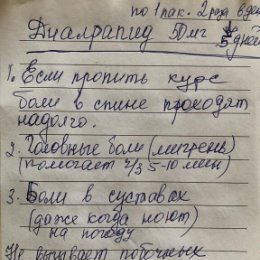 по 1 пак. 2 раза в день
Дуалрапид 50мг 5 дней
1. Если пропить курс
боли в спине проходят
надолго.
2. Головные боли (мигрень)
(помогает ч/з 5-10 мин)
3. Боли в суставах
(даже когда ноют)
на погоду
Не вызывает побочных